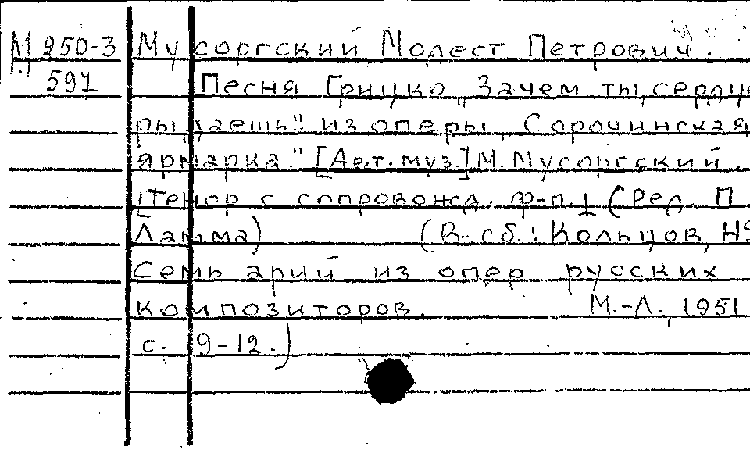 М 250-3 Мусоргский Модест Петрович.
597 Песня Грицко "Зачем ты, сердце
рыдаешь" из оперы "Сорочинская
ярмарка." [Авт. муз.] М. Мусоргский.
[Тенор с сопровожд. ф-п.] (Ред. П.
Ламма) (В сб.: Кольцов, Н.
Семь арий из опер русских
композиторов. М.-Л., 1951
с. 9-12.)